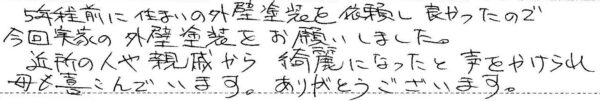 5年程前に住まいの外壁塗装を依頼し良かったので
今回実家の外壁塗装をお願いしました。
近所の人や親戚から綺麗になったと声をかけられ
母も喜こんでいます。ありがとうございます。